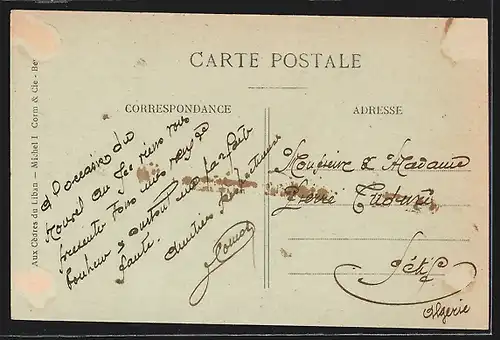 CARTE POSTALE
CORRESPONDANCE
à l'occasion du
nouvel an je viens vous
présenter tous mes vœux de
bonheur & surtout une parfaite
santé.
Amitiés
ADRESSE
Monsieur & Madame
Pierre
Sétif
Algérie
Aux Cèdres du Liban — Michel I Corm & Cie - Be